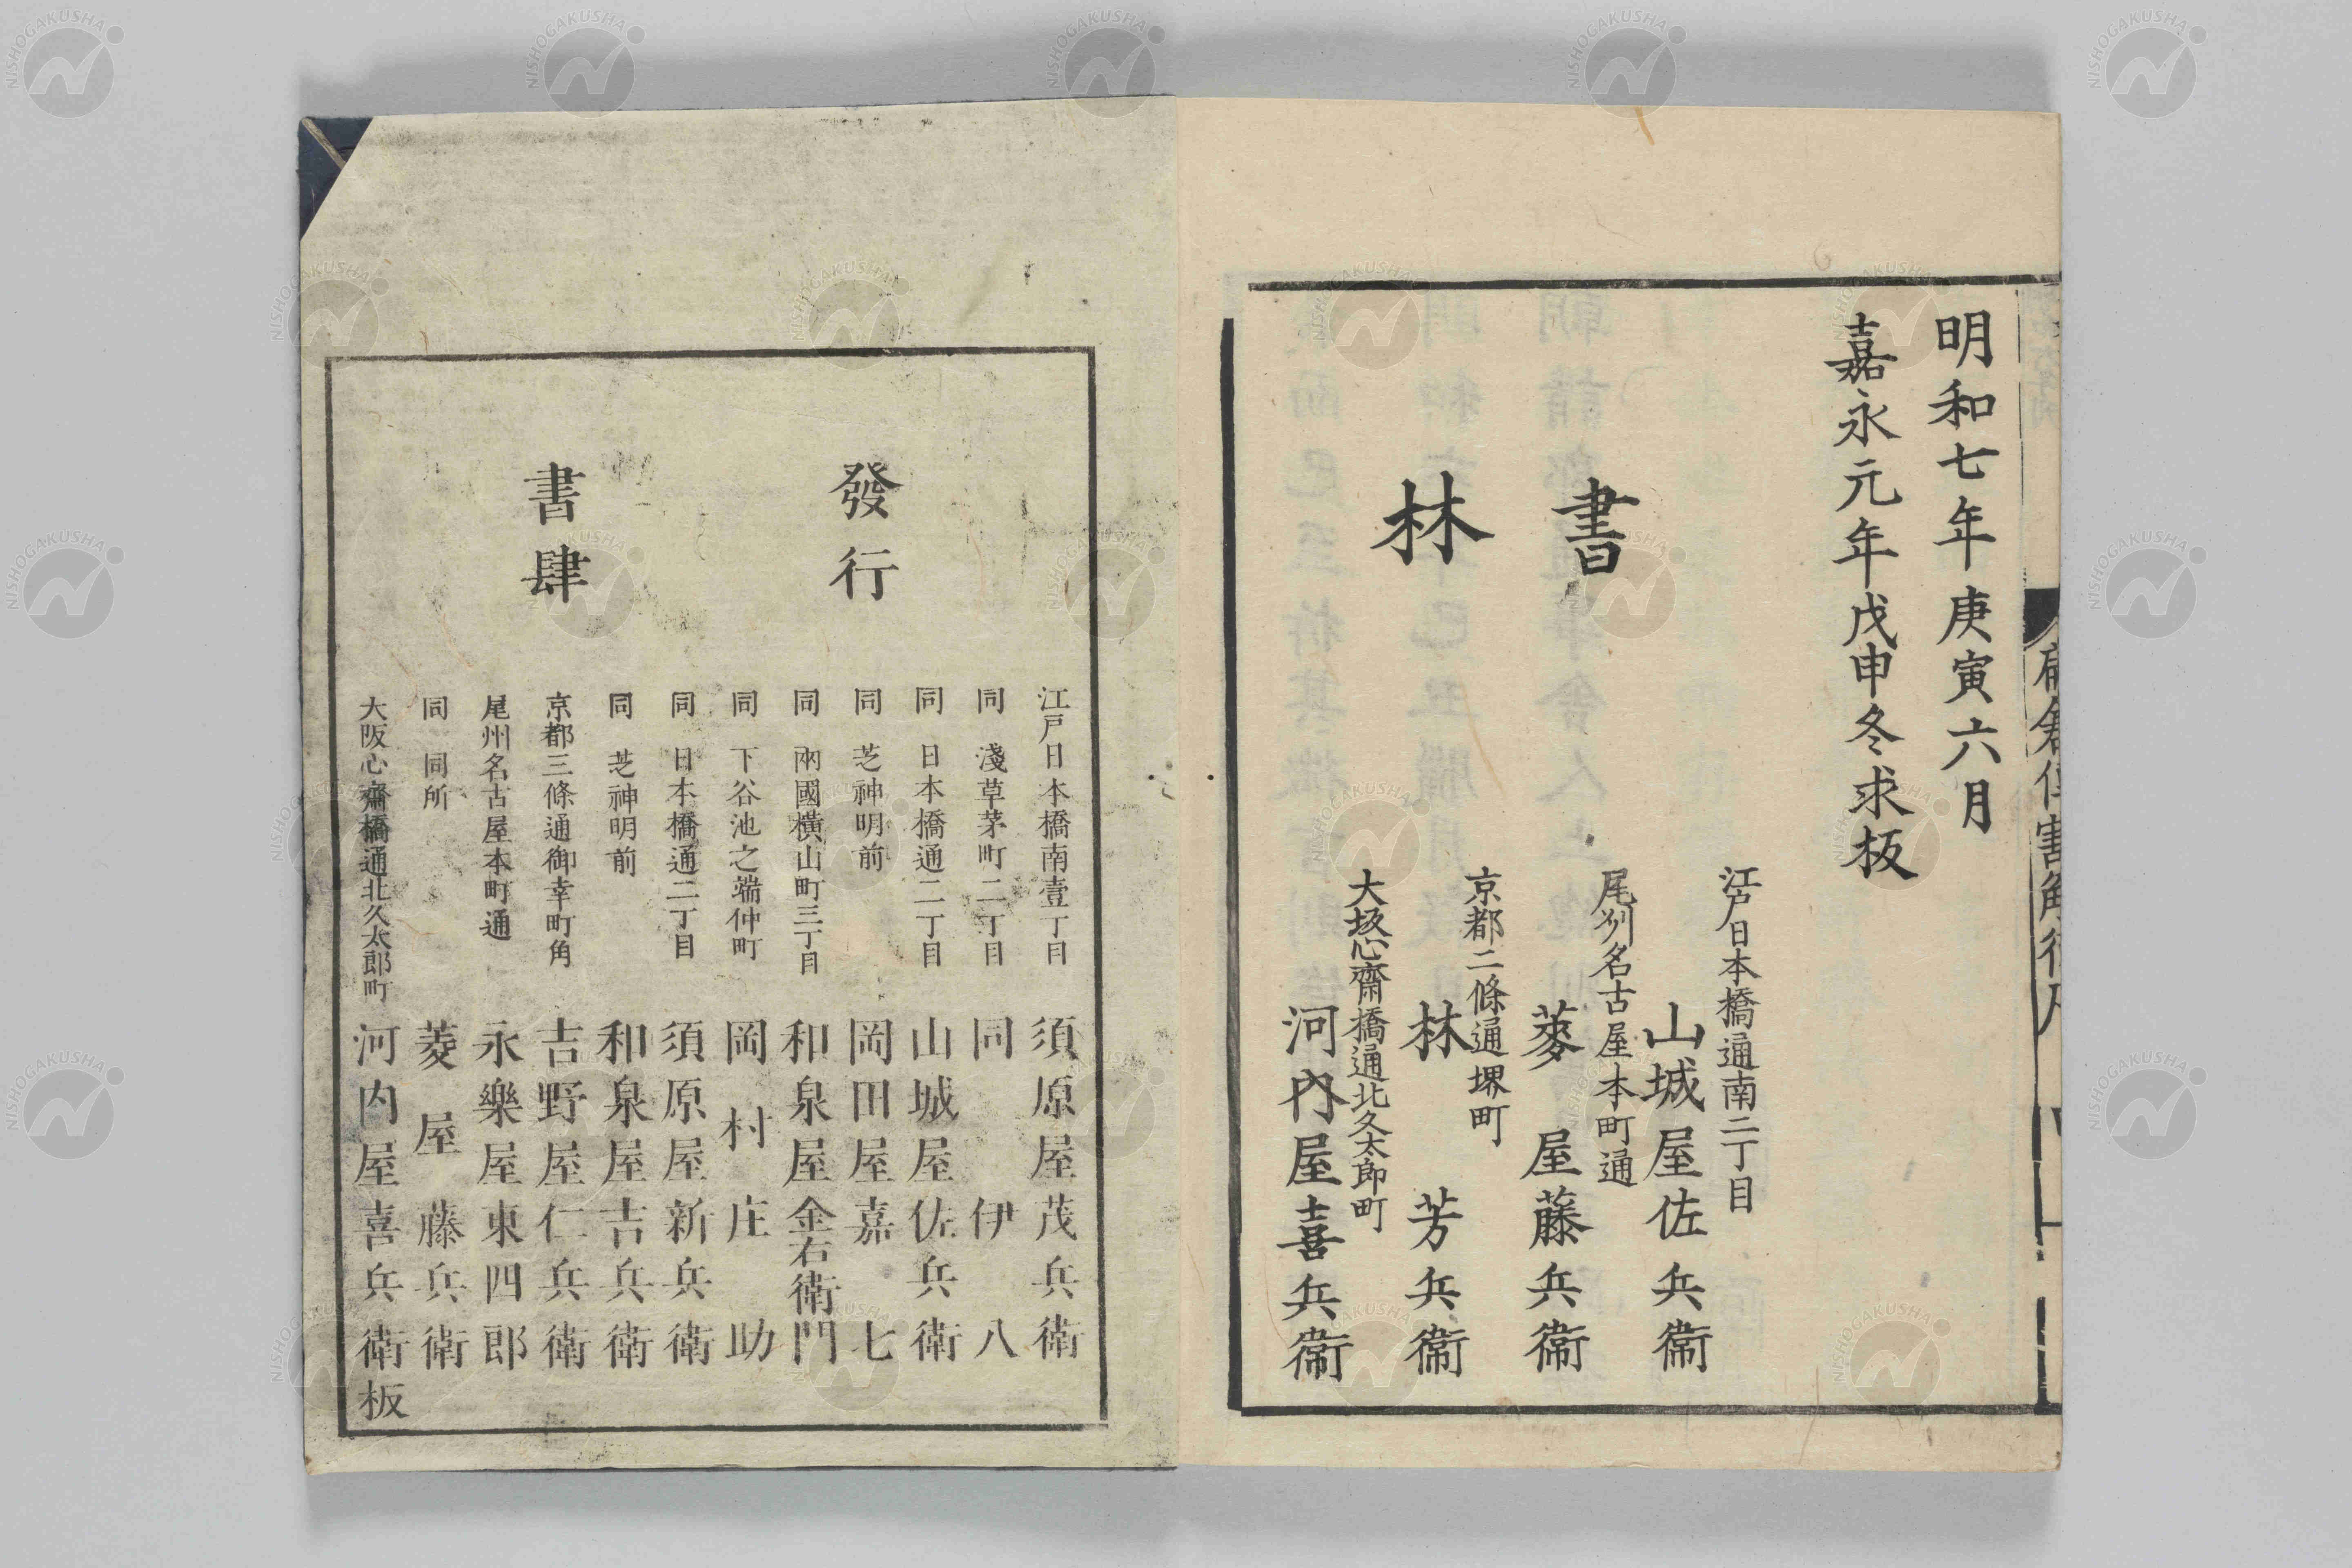 明和七年庚寅六月
嘉永元年戊申冬求板
書林
江戸日本橋通南二丁目
山城屋佐兵衞
尾州名古屋本町通
菱屋藤兵衞
京都二條通堺町
林芳兵衞
大坂心齋橋通北久太郎町
河内屋喜兵衞
發行
書肆
江戸日本橋南壹丁目 須原屋茂兵衛
同 淺草茅町二丁目 同伊八
同 日本橋通二丁目 山城屋佐兵衛
同 芝神明前 岡田屋嘉七
同 兩國橫山町三丁目 和泉屋金右衛門
同 下谷池之端仲町 岡村庄助
同 日本橋通二丁目 須原屋新兵衛
同 芝神明前 和泉屋吉兵衛
京都三條通御幸町角 吉野屋仁兵衛
尾州名古屋本町通 永樂屋東四郎
同 同所 菱屋藤兵衛
大阪心齋橋通北久太郎町 河内屋喜兵衛板
NISHOGAKUSHA